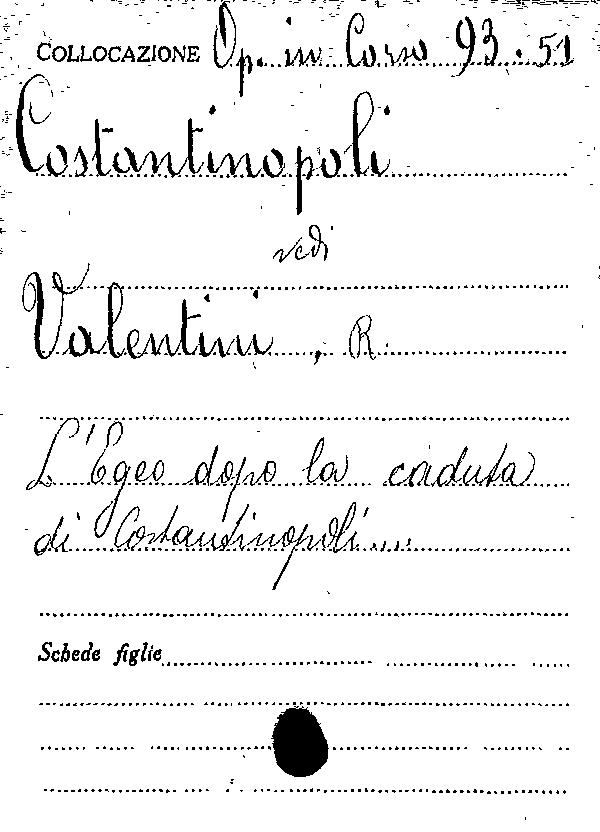 COLLOCAZIONE Op. in Corso 93.51
Costantinopoli
vedi
Valentini, R.
L'Egeo dopo la caduta
di Costantinopoli....
Schede figlie